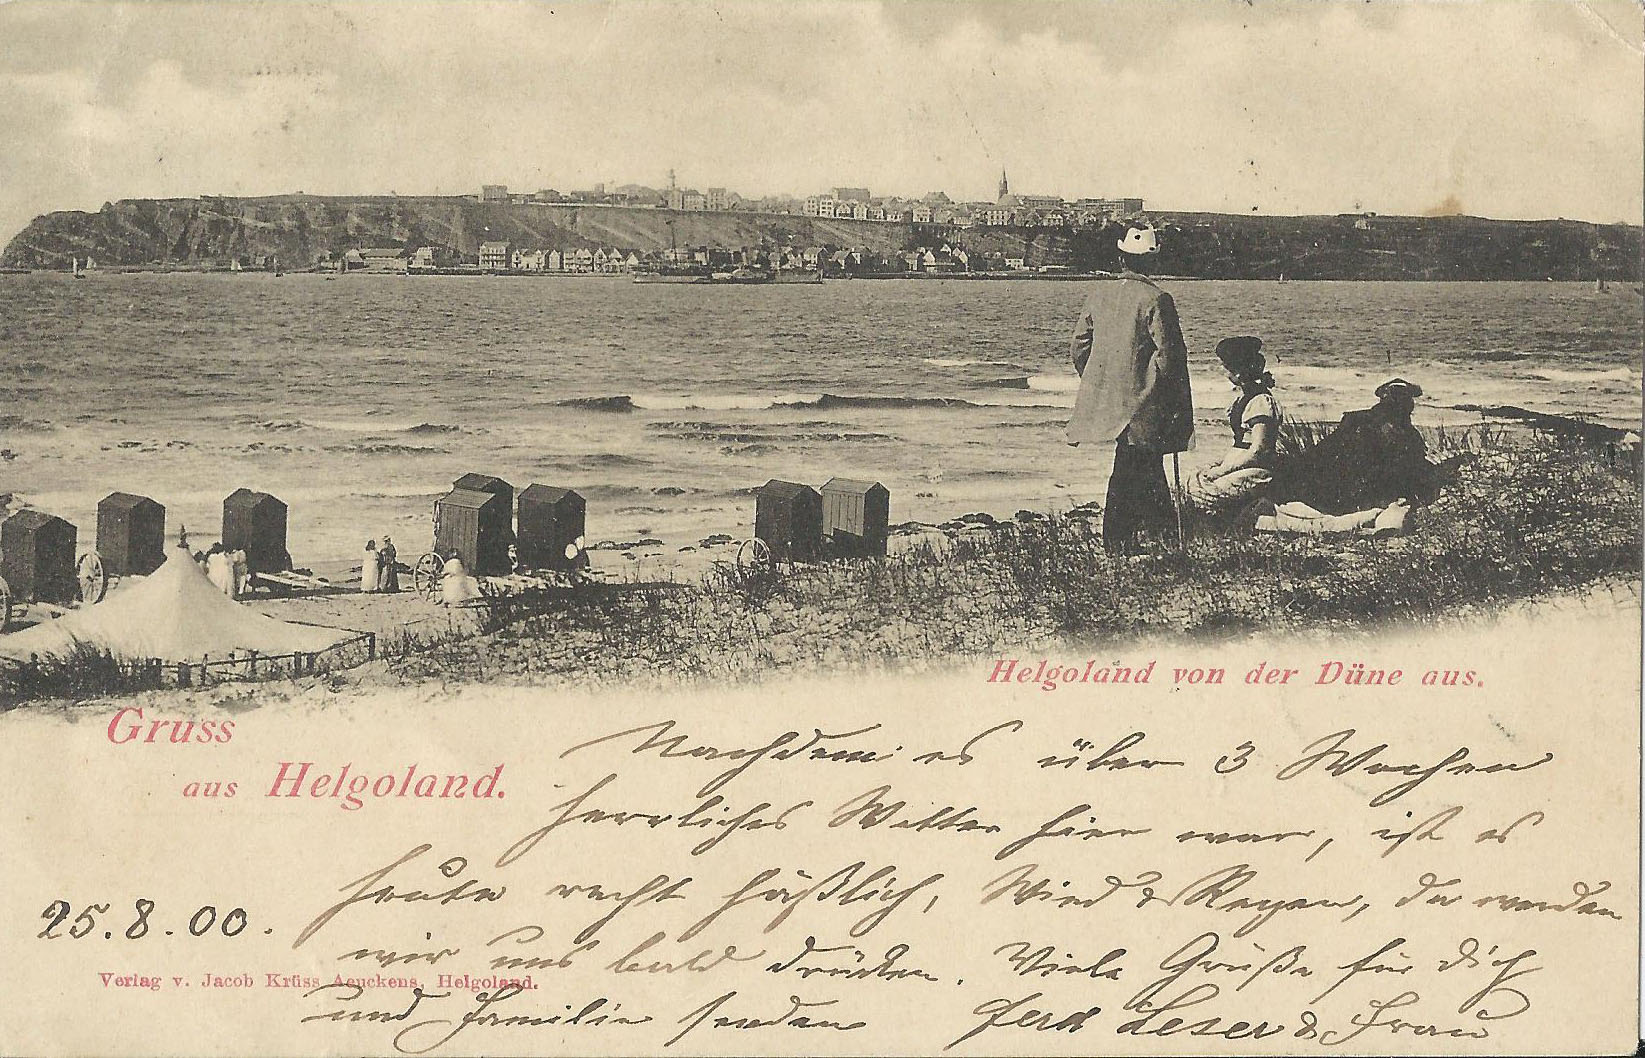 Helgoland von der Düne aus.
Gruss
aus Helgoland.
Nachdem es über 3 Wochen
herrliches Wetter hier war, ist es
heute recht häßlich, Wind & Regen, da werden
wir uns bald drücken. Viele Grüße für Dich
und Familie senden Ferd Leser & Frau
25.8.00.
Verlag v. Jacob Krüss Aeuckens, Helgoland.